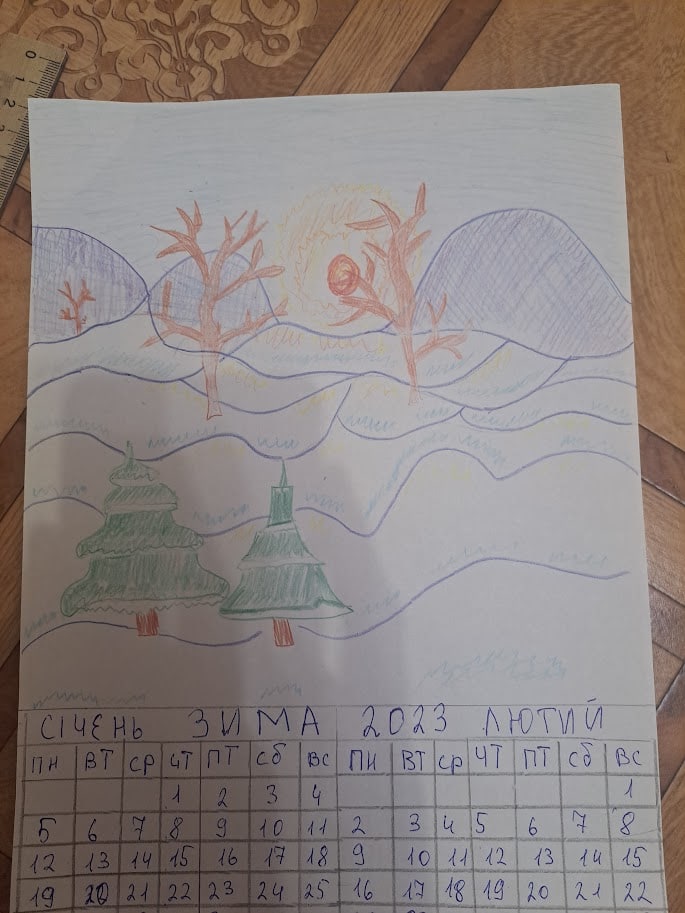 0
1
2
СІЧЕНЬ ЗИМА 2023 ЛЮТИЙ
ПН ВТ СР ЧТ ПТ Сб ВС ПН ВТ СР ЧТ ПТ Сб ВС
1 2 3 4 1
5 6 7 8 9 10 11 2 3 4 5 6 7 8
12 13 14 15 16 17 18 9 10 11 12 13 14 15
19 20 21 22 23 24 25 16 17 18 19 20 21 22